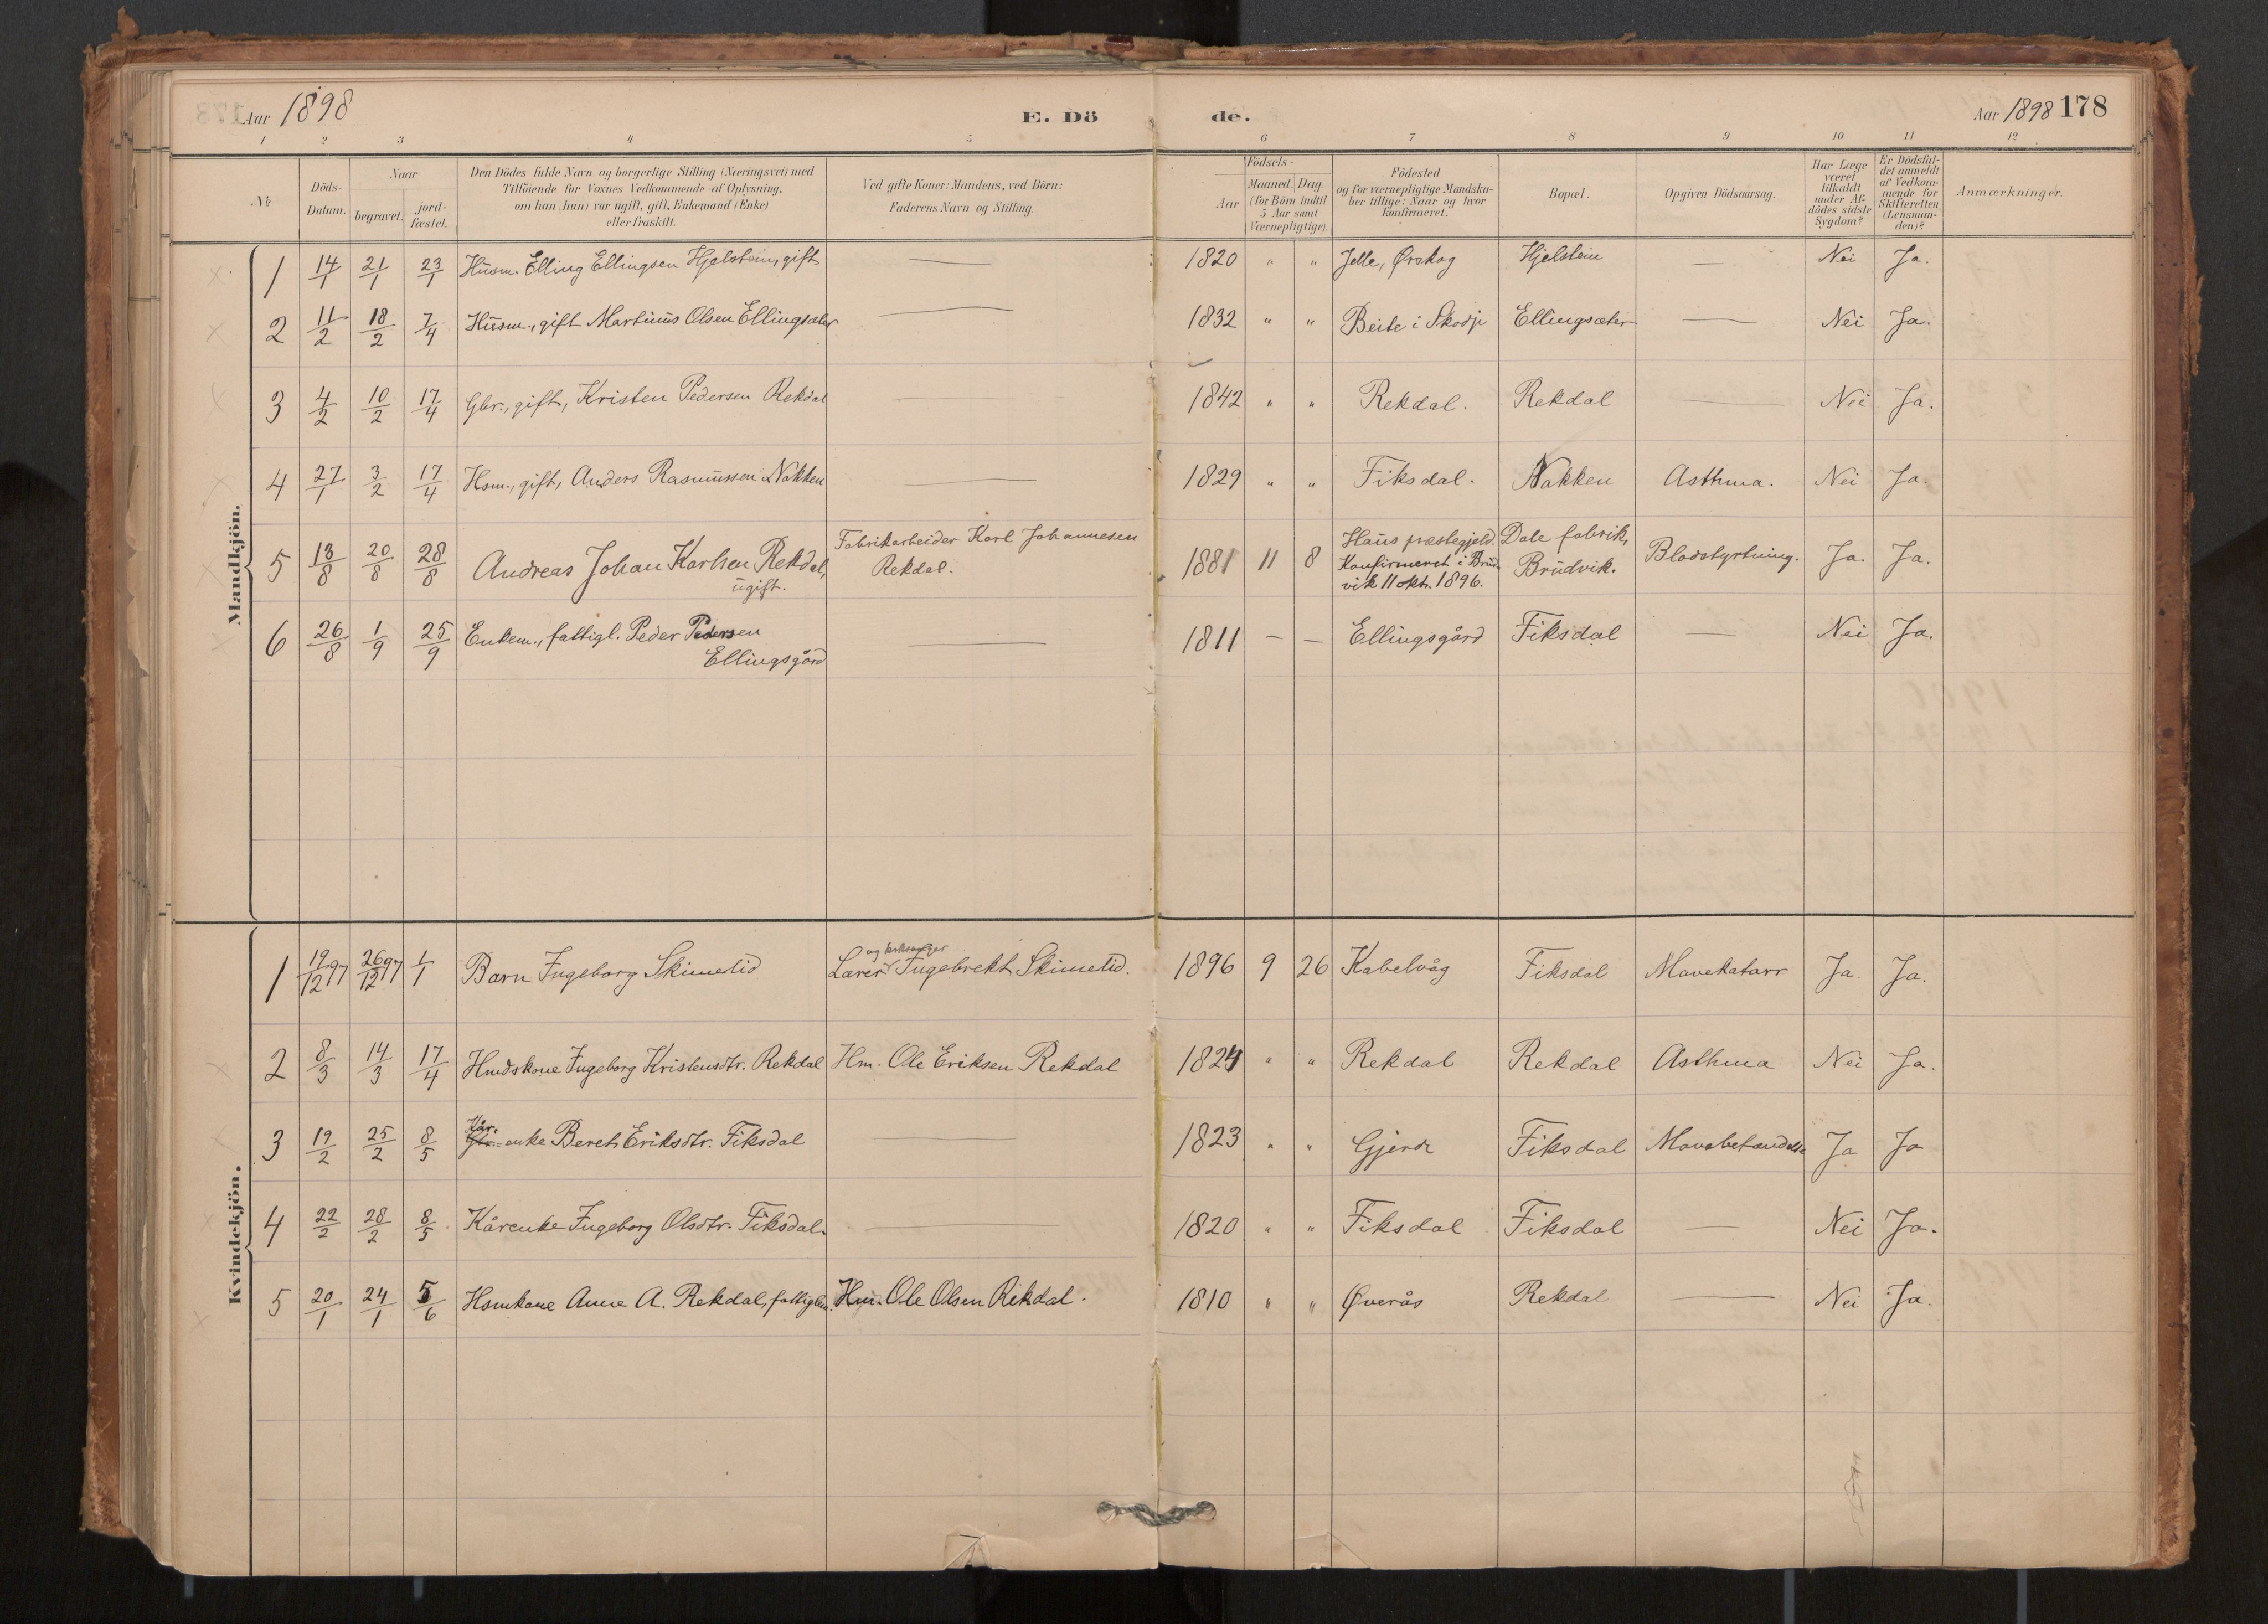 Aar 1898 E. Dö de. Aar 1898 178
1 2 3 4 5 6 7 8 9 10 11 12
No. Döds-Datum. Naar begravet. jord-fæstet. Den Dödes fulde Navn og borgerlige Stilling (Næringsvei) med Tilföiende for Voxnes Vedkommende af Oplysning, om han (hun) var ugift, gift, Enkemand (Enke) eller fraskilt. Ved gifte Koner: Mandens, ved Börn: Faderens Navn og Stilling. Födsels- Aar Maaned. Dag. (for Börn indtil 5 Aar samt Værnepligtige). Födested og for værnepligtige Mandska-ber tillige: Naar og hvor konfirmeret. Bopæl. Opgiven Dödsaarsag. Har Læge været tilkaldt under Af-dödes sidste Sygdom? Er Dödsfal-det anmeldt af Vedkom-mende for Skifteretten (Lensman-den)? Anmærkninger.
Mandkjön.
1 14/1 21/1 23/1 Husm. Elling Ellingsen Hjelstein, gift — 1820 " " Jelle, Ørskog Hjelstein — Nei Ja.
2 11/2 18/2 7/4 Husm., gift Martinus Olsen Ellingsæter — 1832 " " Beite i Skodje Ellingsæter — Nei Ja.
3 4/2 10/2 17/4 Gbr., gift, Kristen Pedersen Rekdal — 1842 " " Rekdal. Rekdal — Nei Ja.
4 27/1 3/2 17/4 Hsm., gift, Anders Rasmussen Nakken — 1829 " " Fiksdal. Nakken Asthma. Nei Ja.
5 13/8 20/8 28/8 Andreas Johan Karlsen Rekdal, ugift. Fabrikarbeider Karl Johannesen Rekdal. 1881 11 8 Haus præstegjeld. Konfirmeret i Brud-vik 11 okt. 1896. Dale fabrik, Brudvik. Blodstyrtning. Ja. Ja.
6 26/8 1/9 25/9 Enkem., fattigl. Peder Pedersen Ellingsgård — 1811 — — Ellingsgård Fiksdal — Nei Ja.
Kvindekjön.
1 19/12 97 26/12 97 1/1 Barn Ingeborg Skimelid Lærer og kirkesanger Ingebrekt Skimelid. 1896 9 26 Kabelvåg Fiksdal Mavekatarr Ja Ja.
2 8/3 14/3 17/4 Hmdskone Ingeborg Kristensdtr. Rekdal Hm. Ole Eriksen Rekdal 1824 " " Rekdal Rekdal Asthma Nei Ja.
3 19/2 25/2 8/5 Kår. enke Beret Eriksdtr. Fiksdal — 1823 " " Gjerde Fiksdal Mavebetændelse Ja Ja
4 22/2 28/2 8/5 Kårenke Ingeborg Olsdtr. Fiksdal. — 1820 " " Fiksdal Fiksdal — Nei Ja.
5 20/1 24/1 5/6 Hsmkone Anne A. Rekdal, fattiglem. Hm. Ole Olsen Rekdal. 1810 " " Øverås Rekdal — Nei Ja.